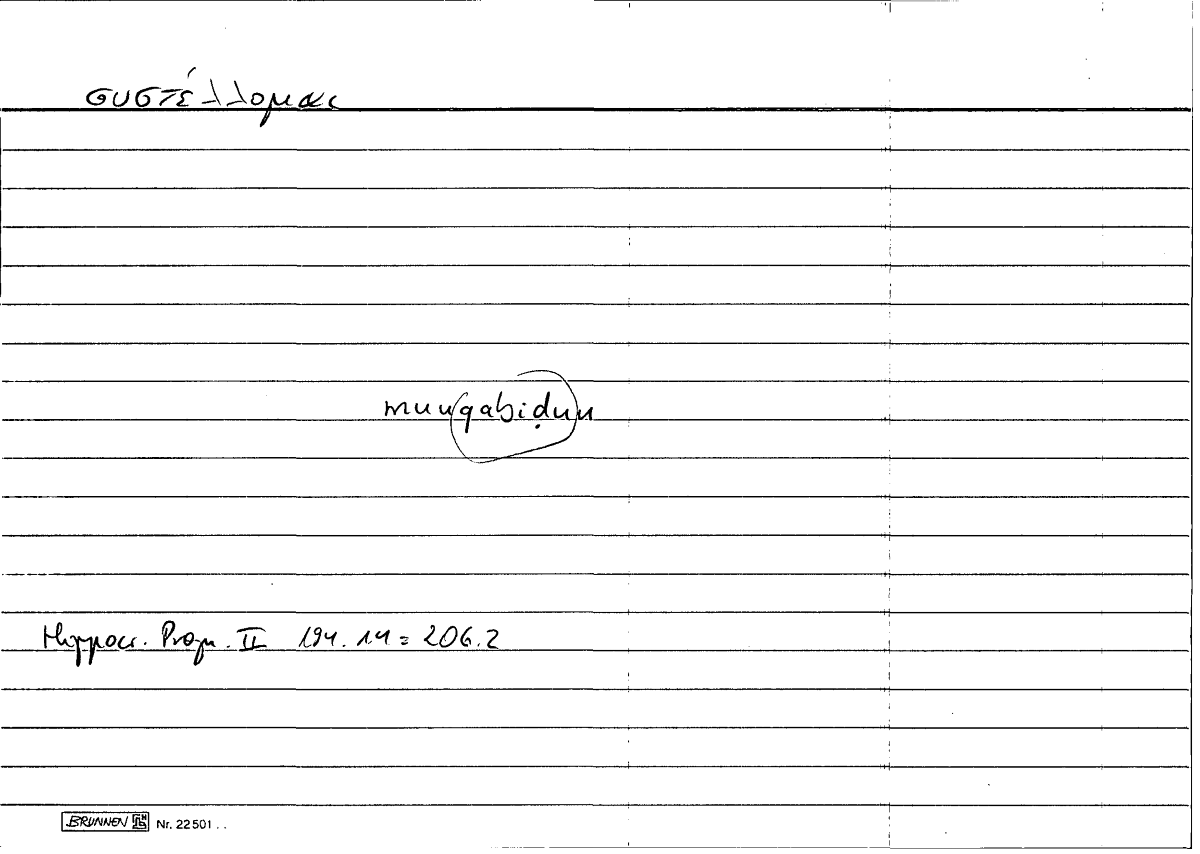 συστέλλομαι
munqabiḍun
Hippocr. Progn. II 194.14 = 206.2
BRUNNEN Nr. 22501 ..